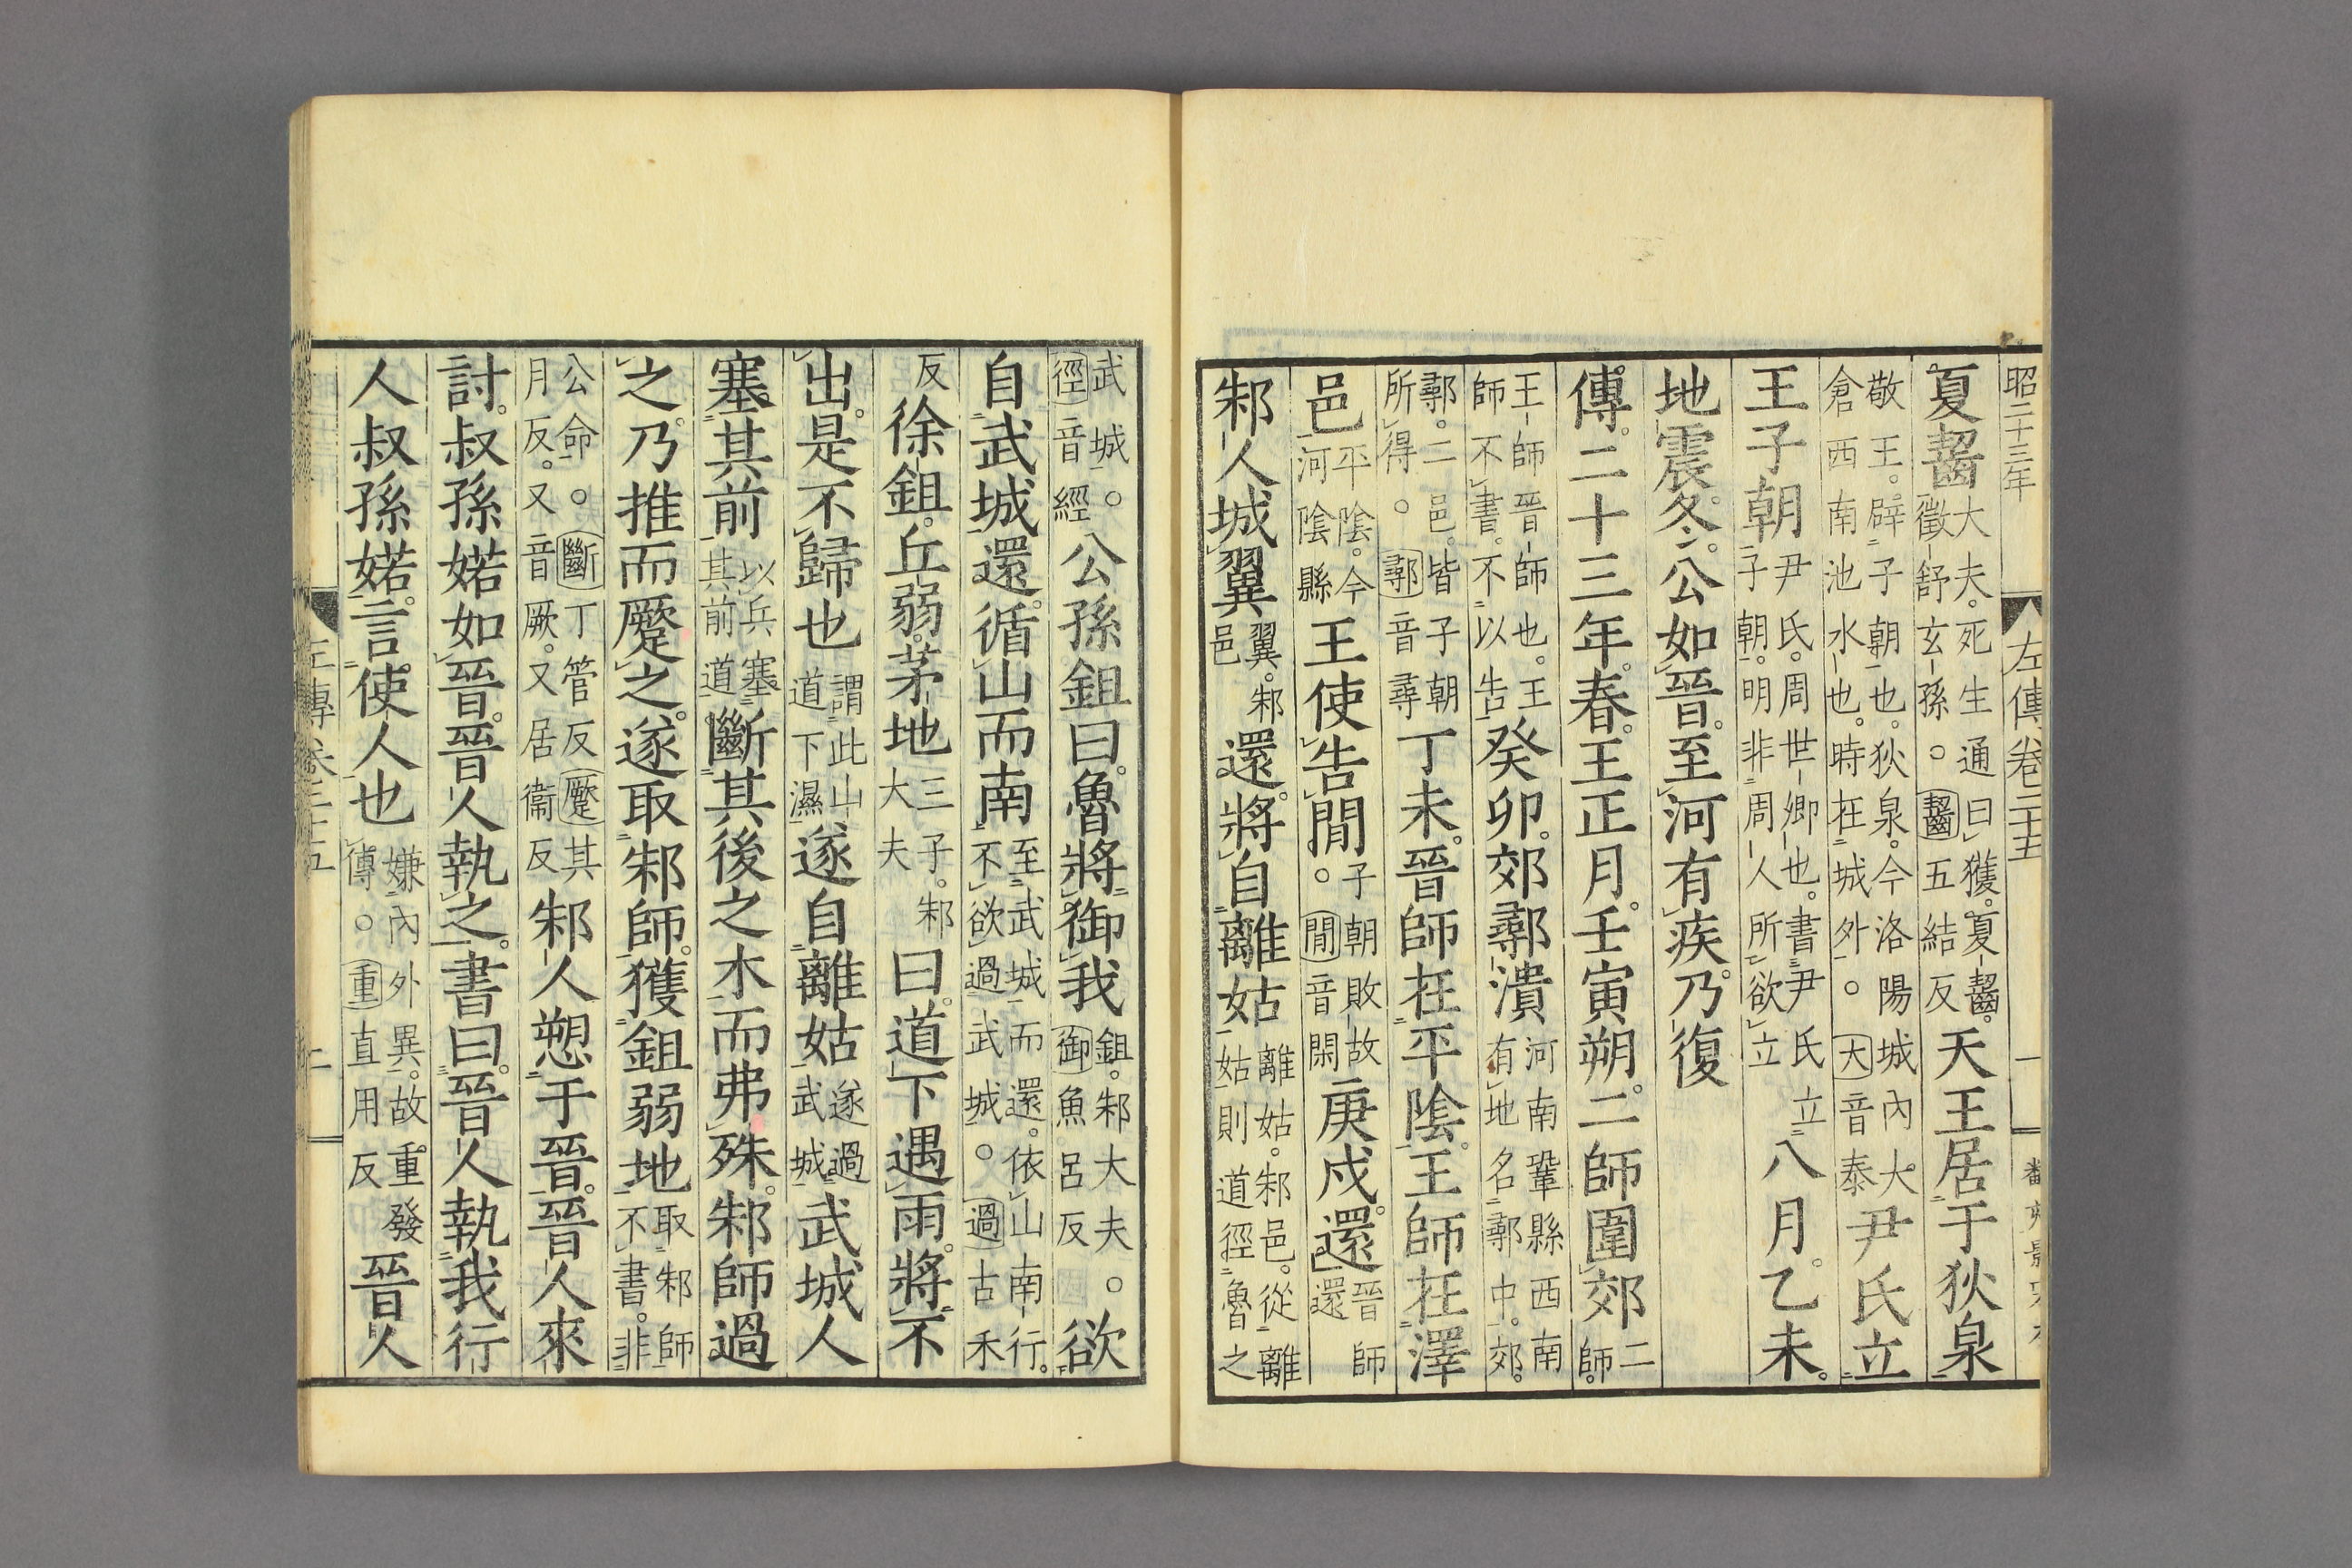 昭二十三年 左傳卷二十五 一
夏齧大夫。死生通曰獲。夏齧。徵舒玄孫。○齧五結反天王居于狄泉
敬王。辟子朝也。狄泉。今洛陽城內大倉西南池水也。時在城外。○大音泰尹氏立
王子朝尹氏。周世卿也。書尹氏立子朝。明非周人所欲立八月。乙未。
地震。冬。公如晉。至河有疾。乃復
傳。二十三年。春。王正月。壬寅朔。二師圍郊二師。
王師晉師也。王師不書。不以告癸卯。郊鄩潰河南鞏縣西南有地名鄩中。郊。
鄩。二邑。皆子朝所得。○鄩音尋丁未。晉師在平陰。王師在澤
邑平陰。今河陰縣王使告閒。子朝敗故。○閒音閑庚戌。還晉師還
邾人城翼翼。邾邑還。將自離姑離姑。邾邑。從離姑則道徑魯之
武城。○徑音經公孫鉏曰。魯將御我鉏。邾大夫。○御魚呂反欲
自武城還。循山而南至武城而還。依山南行。不欲過武城。○過古禾
反徐鉏。丘弱。茅地三子。邾大夫曰。道下遇雨。將不
出。是不歸也謂此山道下濕遂自離姑遂過武城武城人
塞其前以兵塞其前道斷其後之木而弗殊。邾師過
之。乃推而蹷之。遂取邾師。獲鉏弱地取邾師不書。非
公命。○斷丁管反蹷其月反。又音厥。又居衞反邾人愬于晉。晉人來
討。叔孫婼如晉。晉人執之。書曰。晉人執我行
人叔孫婼。言使人也嫌內外異。故重發傳。○重直用反晉人
左傳卷二十五 二